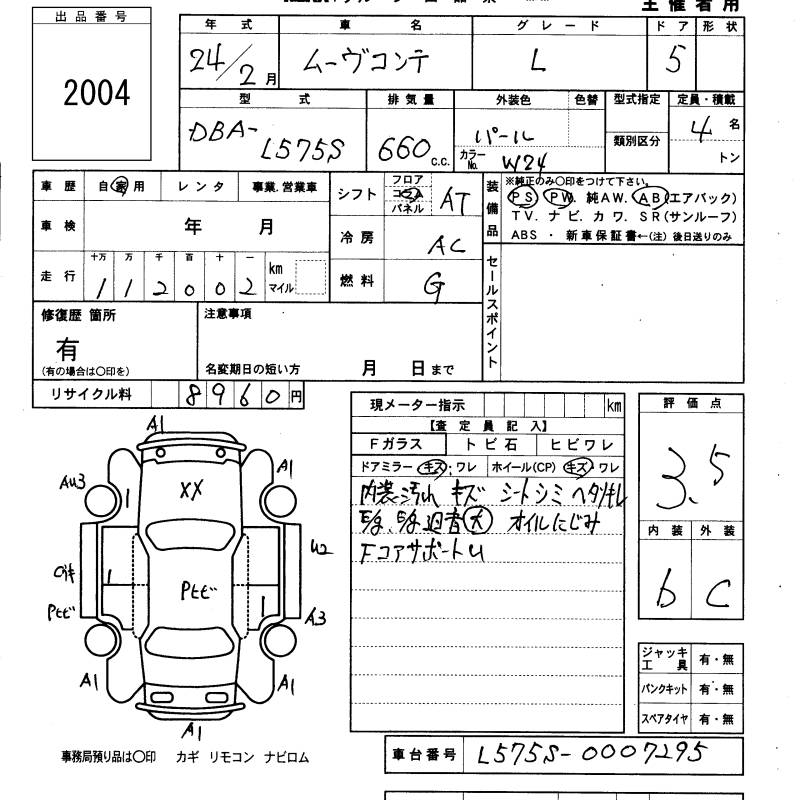 主催者用
出品番号
2004
年式 車名 グレード ドア 形状
24/2月 ムーヴコンテ L 5
型式 排気量 外装色 色替 型式指定 定員・積載
DBA-L575S 660c.c. パール 類別区分 4名
カラーNo. W24 トン
車歴 自家用 レンタ 事業.営業車
シフト フロア コラム パネル AT
装備品 ※純正のみ○印をつけて下さい。
PS PW. 純AW. AB(エアバック)
TV. ナビ. カワ. SR(サンルーフ)
ABS ・ 新車保証書←(注) 後日送りのみ
車検 年 月
冷房 AC
走行 十万 万 千 百 十 一 km マイル
112002
燃料 G
セールスポイント
修復歴 箇所 注意事項
有
(有の場合は○印を) 名変期日の短い方 月 日まで
リサイクル料 8960円
現メーター指示 km
【査定員記入】
Fガラス トビ石 ヒビワレ
ドアミラー キズ・ワレ ホイール(CP) キズ・ワレ
内装汚れ キズ シートシミ ヘタリキレ
大 オイルにじみ
FコアサポートU
評価点
3.5
内装 外装
b C
ジャッキ工具 有・無
パンクキット 有・無
スペアタイヤ 有・無
A1
AU3 XX A1
U2
Pヒビ
Pヒビ A3
A1 A1
A1
事務局預り品は○印 カギ リモコン ナビロム
車台番号 L575S-0007295